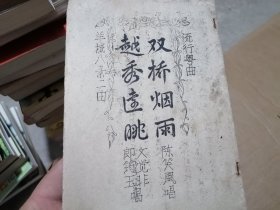 流行粤曲
双桥烟雨
陈笑风唱
越秀远眺
文觉非
郎筠玉唱